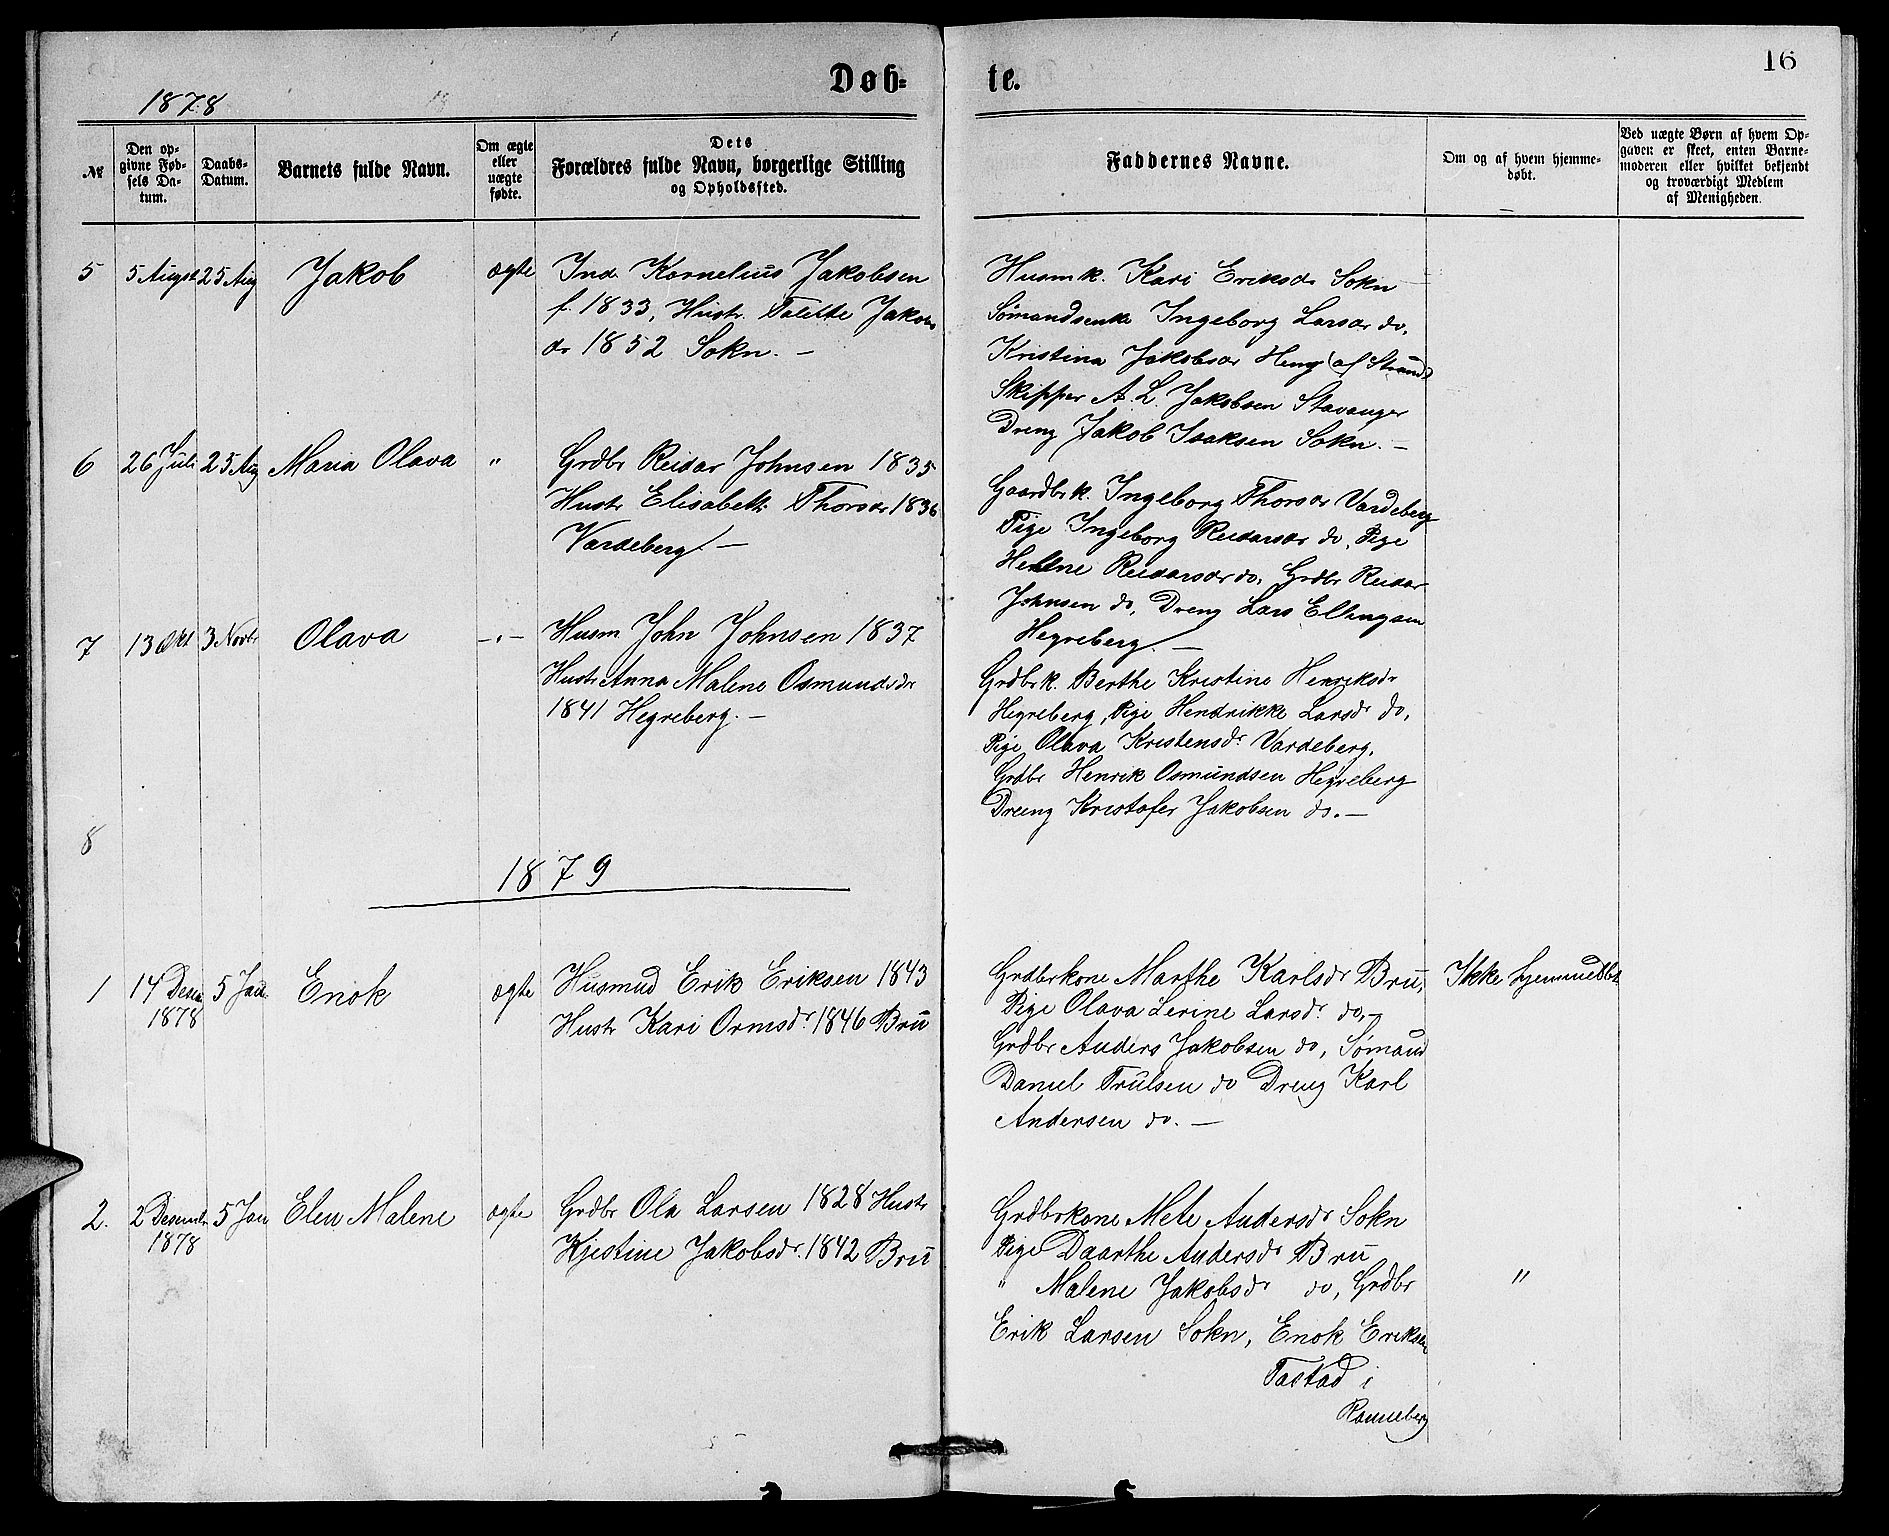 16
Døb-
te.
1878
№
Den op-
givne Fød-
sels Da-
tum.
Daabs-
Datum.
Barnets fulde Navn.
Om ægte
eller
uægte
fødte.
Dets
Forældres fulde Navn, borgerlige Stilling
og Opholdssted.
Faddernes Navne.
Om og af hvem hjemme-
døbt.
Ved uægte Børn af hvem Op-
gaven er skeet, enten Barne-
moderen eller hvilket bekjendt
og troværdigt Medlem
af Menigheden.
5 5 Augst 25 Aug Jakob ægte Ind. Kornelius Jakobsen
f. 1833, Hustr. Talette Jakobs
dr 1852 Sokn. —
Husmk. Kari Eriksdr Sokn
Sømandsenke Ingeborg Larsdr do,
Kristina Jakobsdr Heng (af Strand)
Skipper A. L. Jakobsen Stavanger
Dreng Jakob Isaksen Sokn. —
6 26 Juli 25 Aug Maria Olava " Grdbr Reidar Johnsen 1835
Hustr Elisabeth Thorsdr 1836
Vardeberg. —
Gaardbrk. Ingeborg Thorsdr Vardeberg
Pige Ingeborg Reidarsdr do, Pige
Helene Reidarsdr do, Grdbr Reidar
Johnsen do, Dreng Lars Ellingsen
Hegreberg. —
7 13 Okt 3 Novbr Olava -"- Husm John Johnsen 1837
Hustr Anna Malene Osmundsdr
1841 Hegreberg. —
Grdbrk. Berthe Kristine Henriksdr
Hegreberg, Pige Hendrikke Larsdr do,
Pige Olava Kristensdr Vardeberg,
Grdbr Henrik Osmundsen Hegreberg
Dreng Kristofer Jakobsen do. —
8
1879
1 14 Desem 5 Jan. Enok ægte Husmd Erik Eriksen 1843
1878 Hustr Kari Ormsdr 1846 Bru
Grdbrkone Marthe Karlsdr Bru, Ikke hjemmedøbt
Pige Olava Serine Larsdr do,
Grdbr Anders Jakobsen do, Sømand
Daniel Trulsen do Dreng Karl
Andersen do. —
2. 2 Desembr 5 Jan Elen Malene ægte Grdbr Ola Larsen 1828 Hustr
1878 Kjestine Jakobsdr. 1842 Bru
Grdbrkone Mete Andersdr Sokn
Pige Daarthe Andersdr Bru
" Malene Jakobsdr do, Grdbr "
Erik Larsen Sokn, Enok Eriksen
Tastad i
Ranneberg